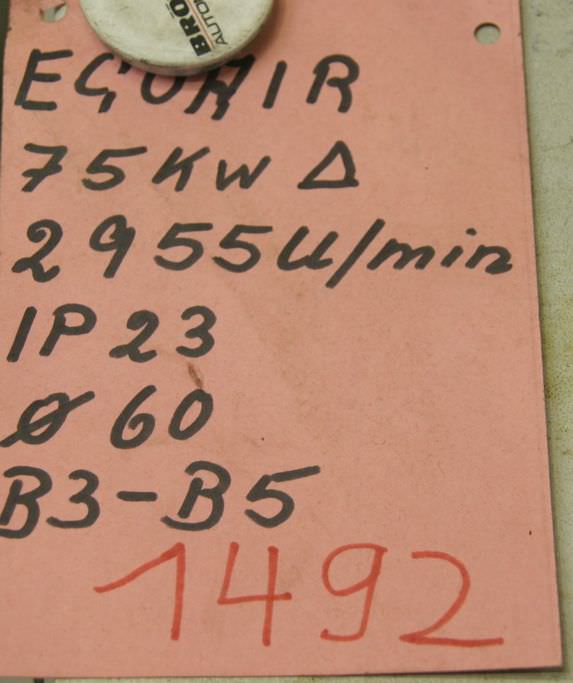 BRO
AUTO
75KW Δ
2955U/min
IP 23
Ø 60
B3-B5
1492